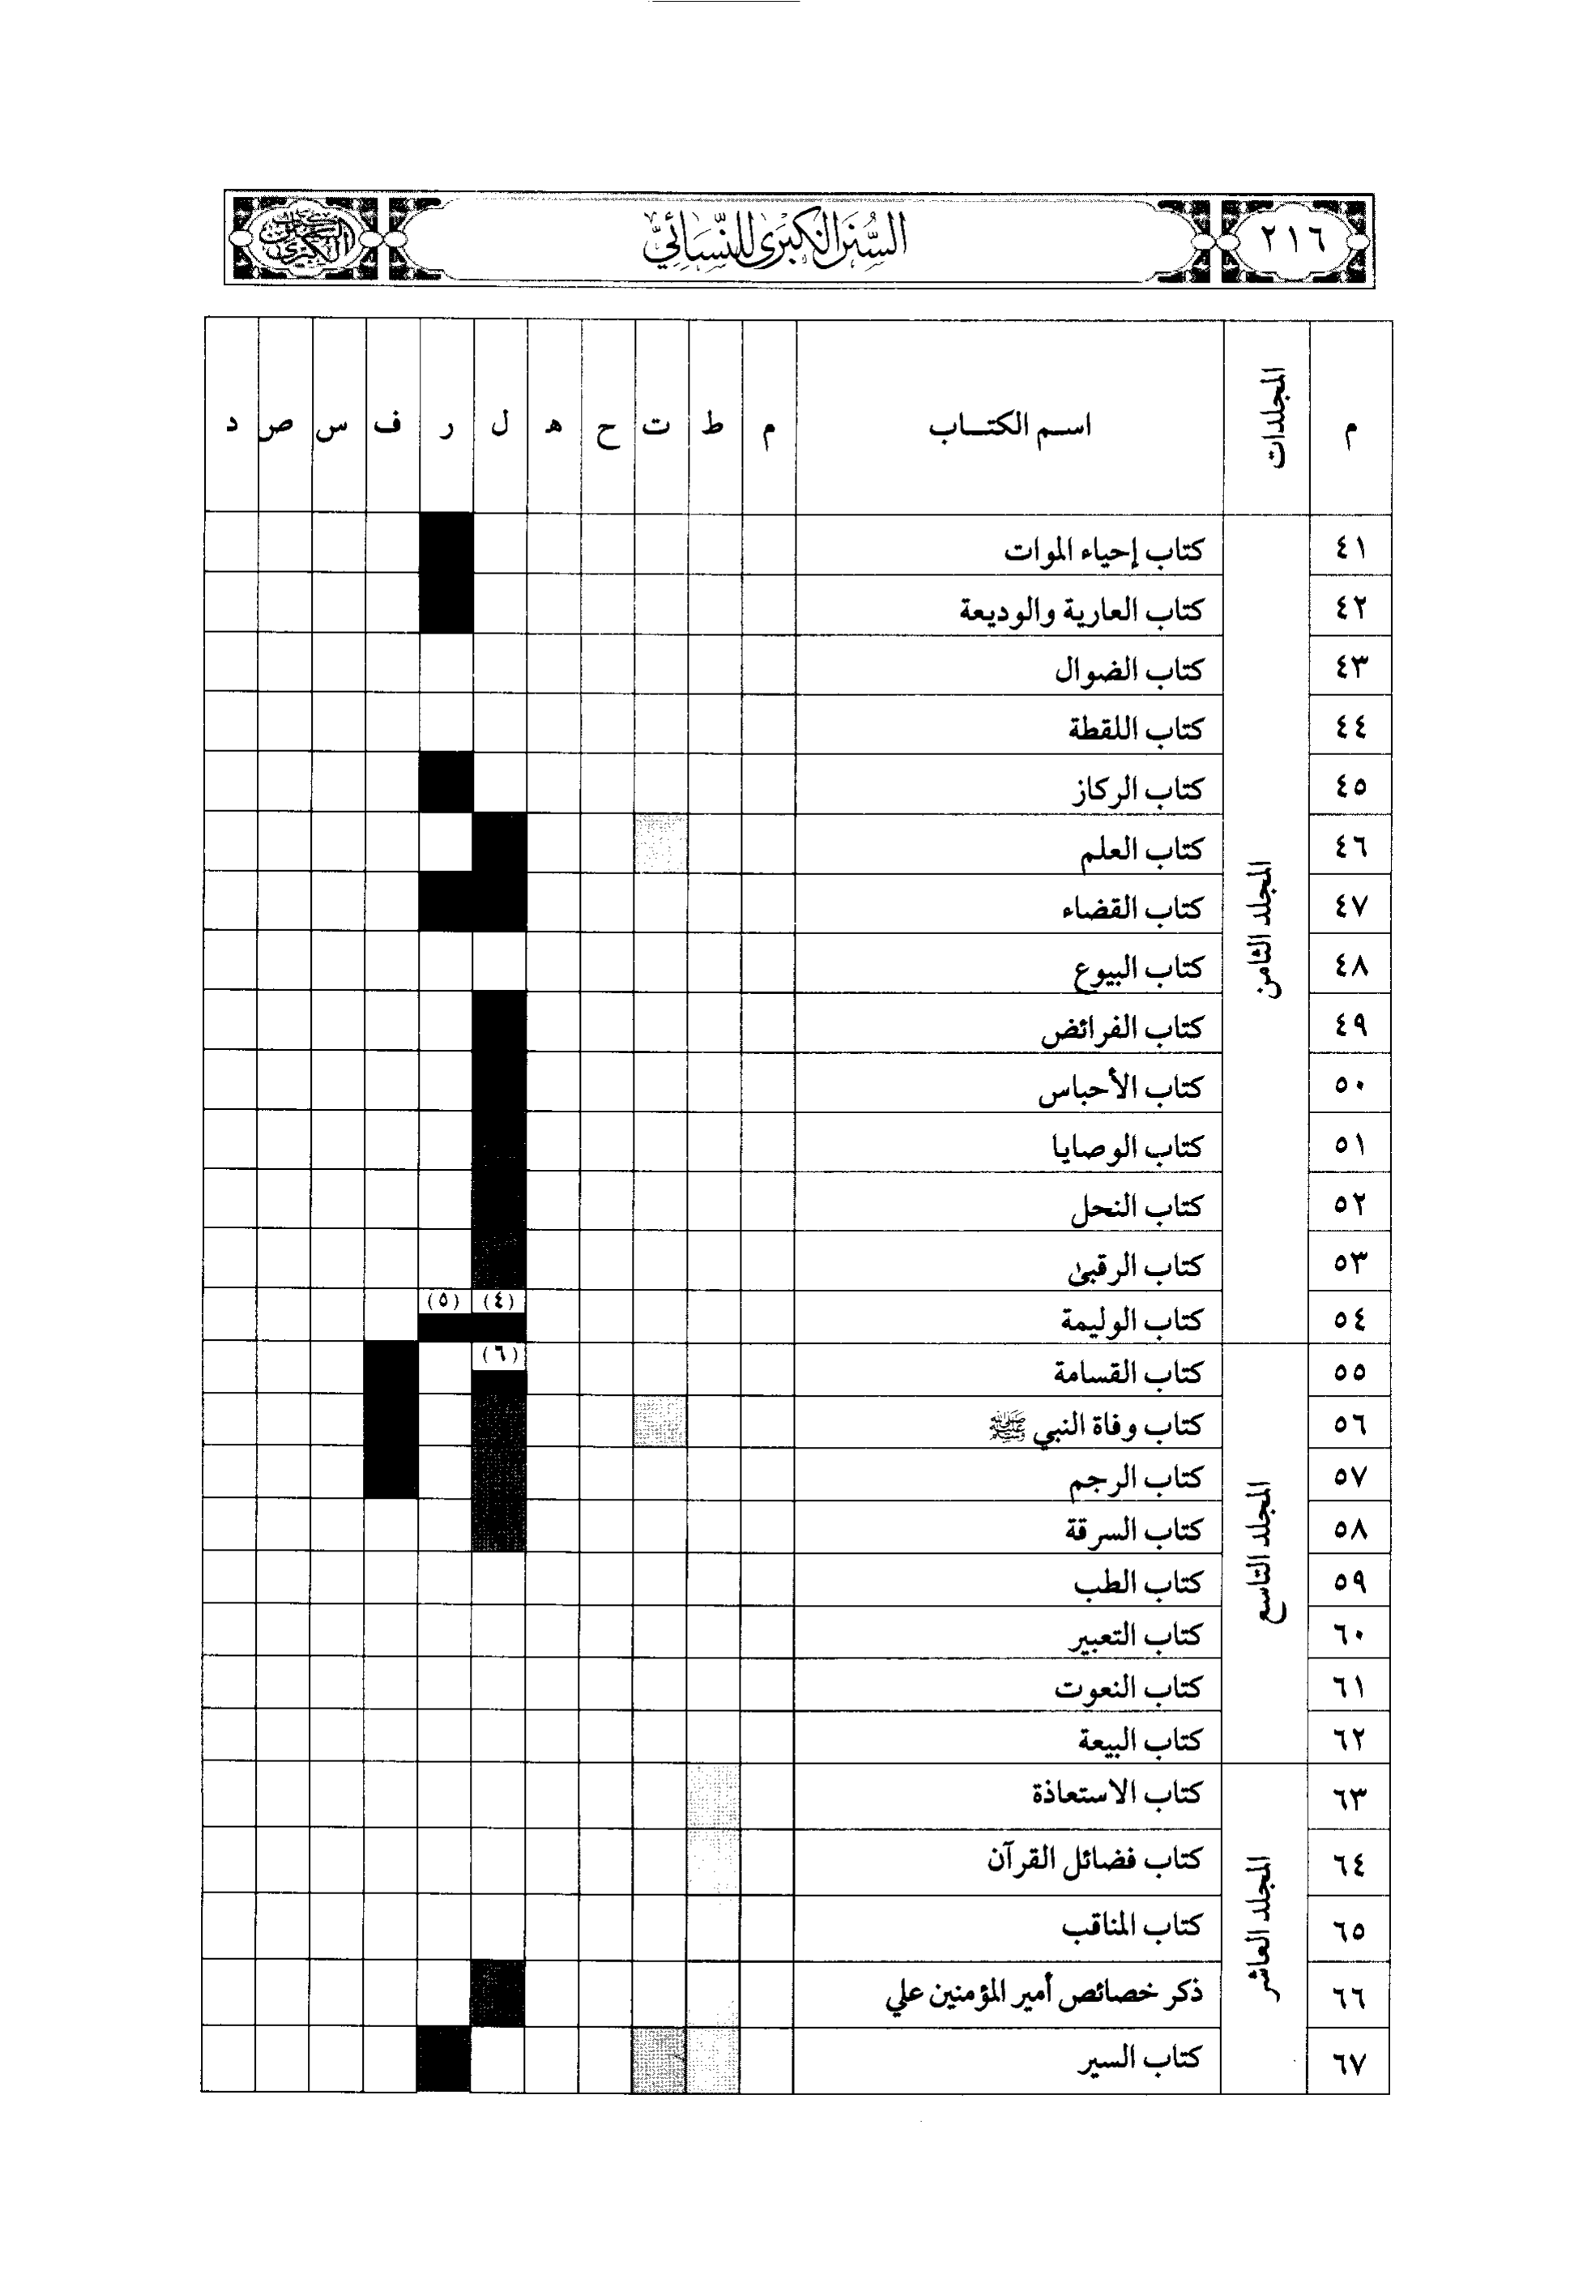 ٢١٦
السُّنَن الكبرى للنَّسَائيّ
م المجلدات اسم الكتاب م ط ت ح ه ل ر ف س ص د
المجلد الثامن
٤١ كتاب إحياء الموات
٤٢ كتاب العارية والوديعة
٤٣ كتاب الضوال
٤٤ كتاب اللقطة
٤٥ كتاب الركاز
٤٦ كتاب العلم
٤٧ كتاب القضاء
٤٨ كتاب البيوع
٤٩ كتاب الفرائض
٥٠ كتاب الأحباس
٥١ كتاب الوصايا
٥٢ كتاب النحل
٥٣ كتاب الرقبى
٥٤ كتاب الوليمة (٤) (٥)
المجلد التاسع
٥٥ كتاب القسامة (٦)
٥٦ كتاب وفاة النبي ﷺ
٥٧ كتاب الرجم
٥٨ كتاب السرقة
٥٩ كتاب الطب
٦٠ كتاب التعبير
٦١ كتاب النعوت
٦٢ كتاب البيعة
المجلد العاشر
٦٣ كتاب الاستعاذة
٦٤ كتاب فضائل القرآن
٦٥ كتاب المناقب
٦٦ ذكر خصائص أمير المؤمنين علي
٦٧ كتاب السير